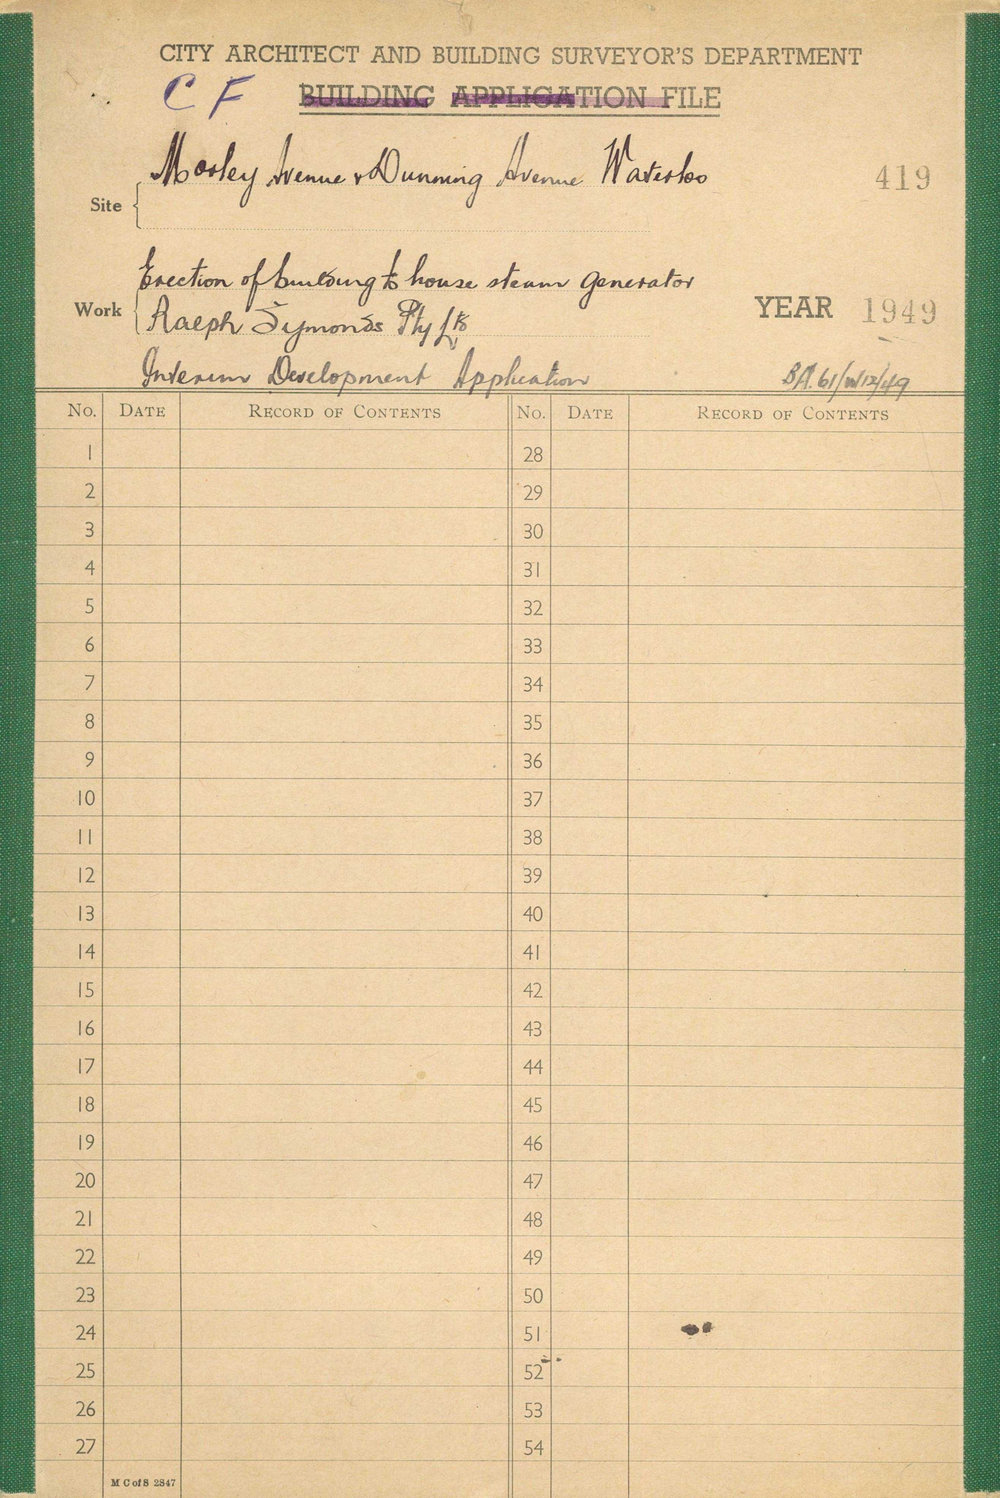 CITY ARCHITECT AND BUILDING SURVEYOR'S DEPARTMENT
C F BUILDING APPLICATION FILE
Morley Avenue & Dunning Avenue Waterloo
419
Site
Erection of building to house steam generator
Work
Ralph Symonds Pty Ltd
YEAR 1949
Interim Development Application
BA. 61/W12/49
No. DATE RECORD OF CONTENTS No. DATE RECORD OF CONTENTS
1 28
2 29
3 30
4 31
5 32
6 33
7 34
8 35
9 36
10 37
11 38
12 39
13 40
14 41
15 42
16 43
17 44
18 45
19 46
20 47
21 48
22 49
23 50
24 51
25 52
26 53
27 54
M C of S 2847